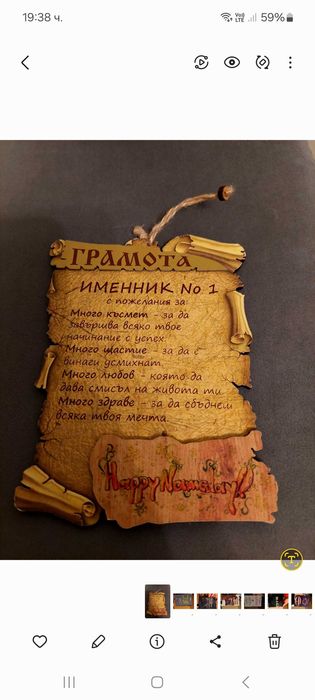 19:38 ч.
59%
ГРАМОТА
ИМЕННИК No 1
с пожелания за:
Много късмет - за да
завършва всяко твое
начинание с успех.
Много щастие - за да се
винаги усмихнат.
Много любов - която да
дава смисъл на живота ти.
Много здраве - за да сбъднем
всяка твоя мечта.
Happy Namesday!